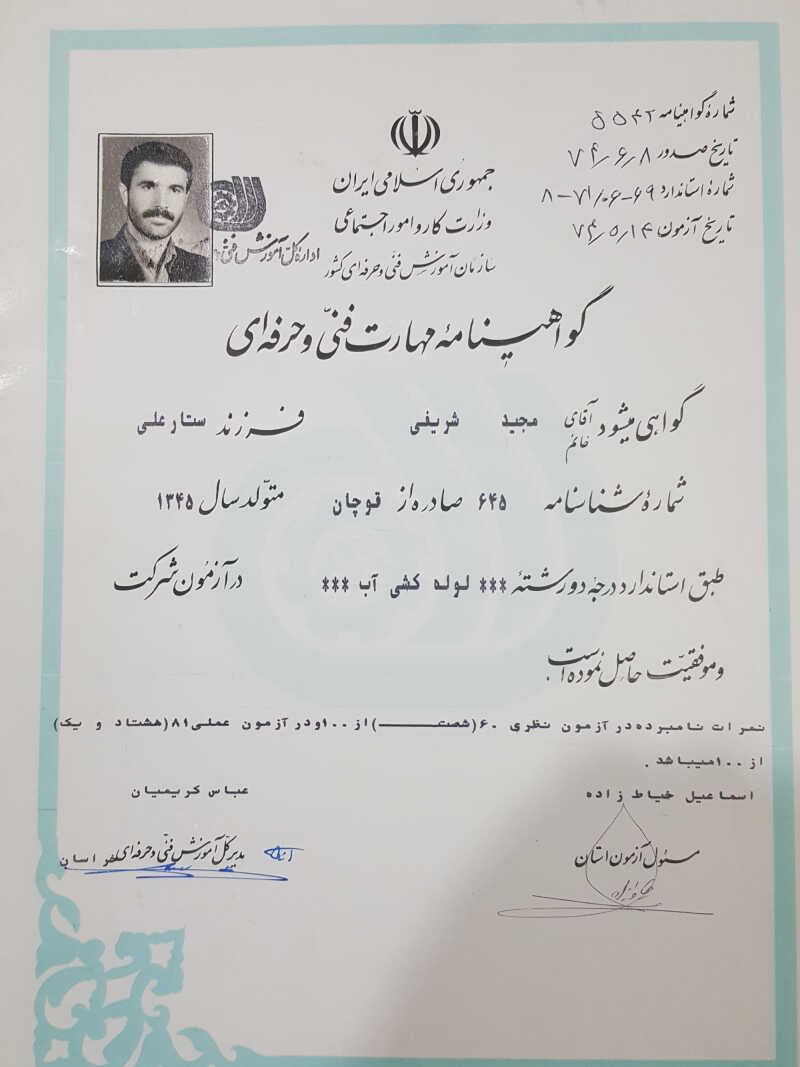 شماره گواهینامه ۵۵۴۲
تاریخ صدور ۷۴/۶/۸
شماره استاندارد ۶۹-۰۶/۷۱-۸
تاریخ آزمون ۷۴/۵/۱۴
جمهوری اسلامی ایران
وزارت کار و امور اجتماعی
سازمان آموزش فنی و حرفه‌ای کشور
اداره کل آموزش فنی و
گواهینامه مهارت فنی و حرفه‌ای
گواهی میشود آقای خانم مجید شریفی فرزند ستارعلی
شماره شناسنامه ۶۴۵ صادره از قوچان متولد سال ۱۳۴۵
طبق استاندارد درجه دو رشته *** لوله کشی آب *** در آزمون شرکت
و موفقیت حاصل نموده است.
نمرات نامبرده در آزمون نظری ۶۰(شصت) از ۱۰۰ و در آزمون عملی ۸۱(هشتاد و یک)
از ۱۰۰ میباشد.
اسماعیل خیاط زاده
عباس کریمیان
مسئول آزمون استان
مدیر کل آموزش فنی و حرفه‌ای خراسان